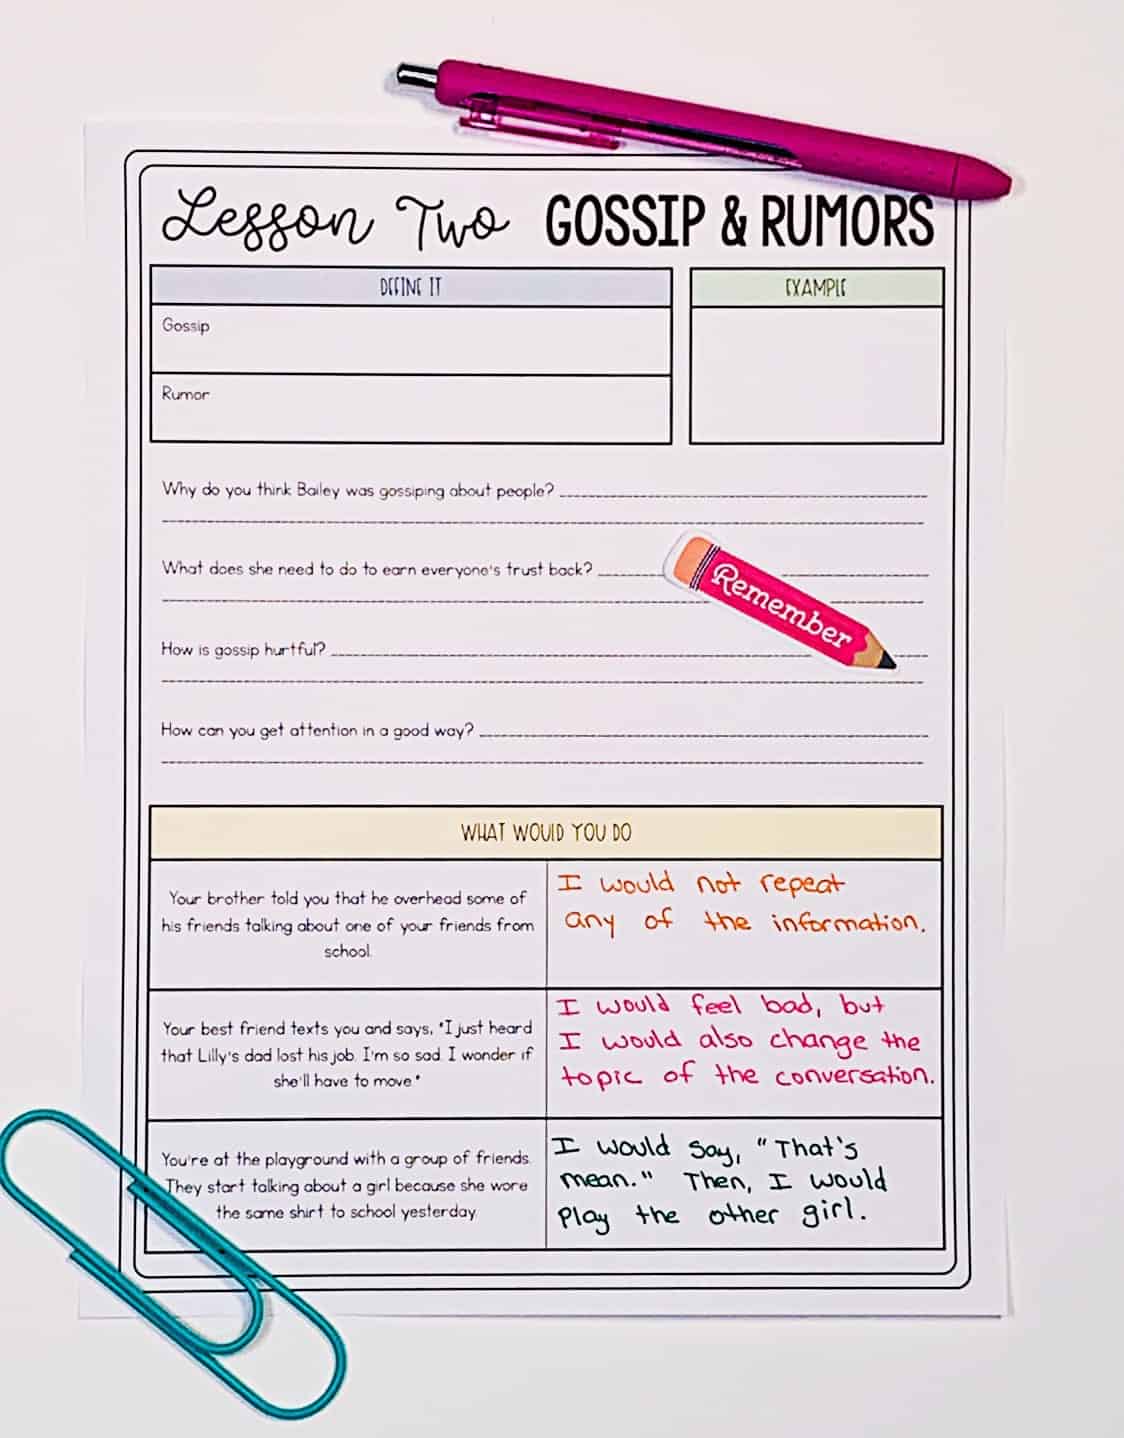 Lesson Two GOSSIP & RUMORS
DEFINE IT
EXAMPLE
Gossip
Rumor
Why do you think Bailey was gossiping about people?
What does she need to do to earn everyone's trust back?
Remember
How is gossip hurtful?
How can you get attention in a good way?
WHAT WOULD YOU DO
Your brother told you that he overhead some of
his friends talking about one of your friends from
school.
I would not repeat
any of the information.
Your best friend texts you and says, "I just heard
that Lilly's dad lost his job. I'm so sad. I wonder if
she'll have to move."
I would feel bad, but
I would also change the
topic of the conversation.
You're at the playground with a group of friends.
They start talking about a girl because she wore
the same shirt to school yesterday.
I would say, "That's
mean." Then, I would
play the other girl.